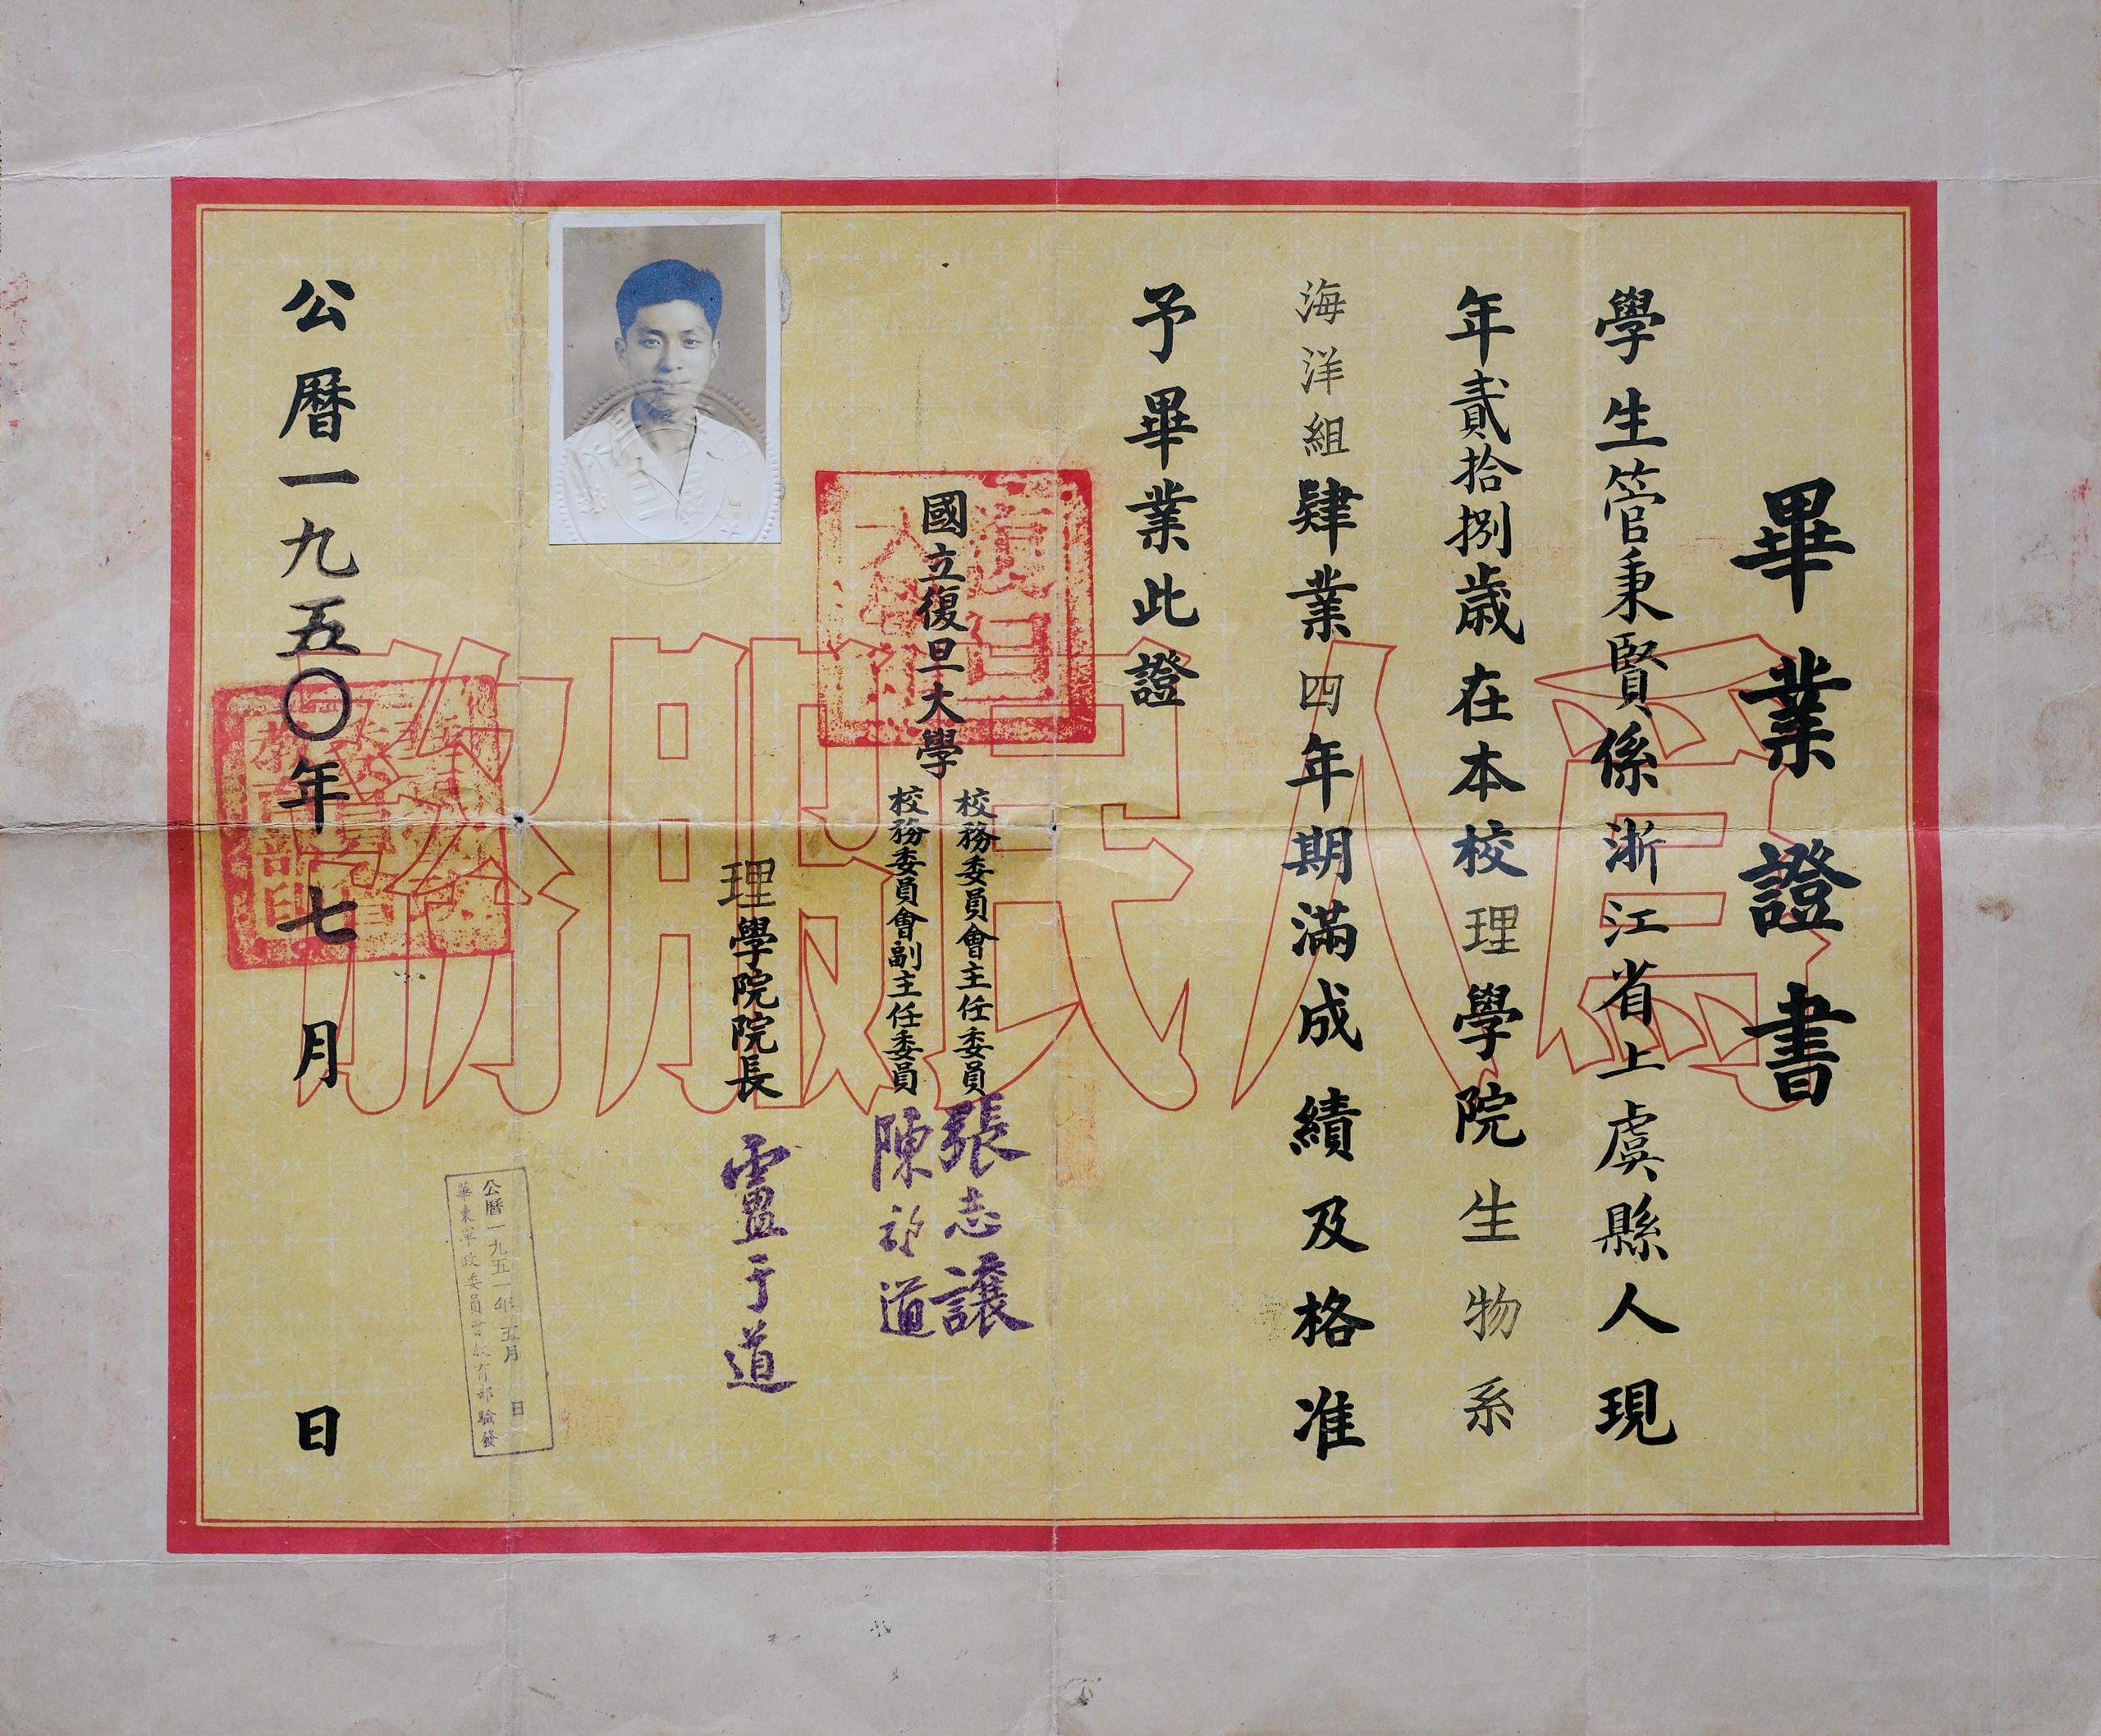 畢業證書
學生管秉賢係浙江省上虞縣人現
年貳拾捌歲在本校理學院生物系
海洋組肄業四年期滿成績及格准
予畢業此證
國立復旦大學
校務委員會主任委員張志讓
校務委員會副主任委員陳望道
理學院院長盧于道
公曆一九五〇年七月 日
公曆一九五一年五月 日
華東軍政委員會教育部驗發
為人民服務